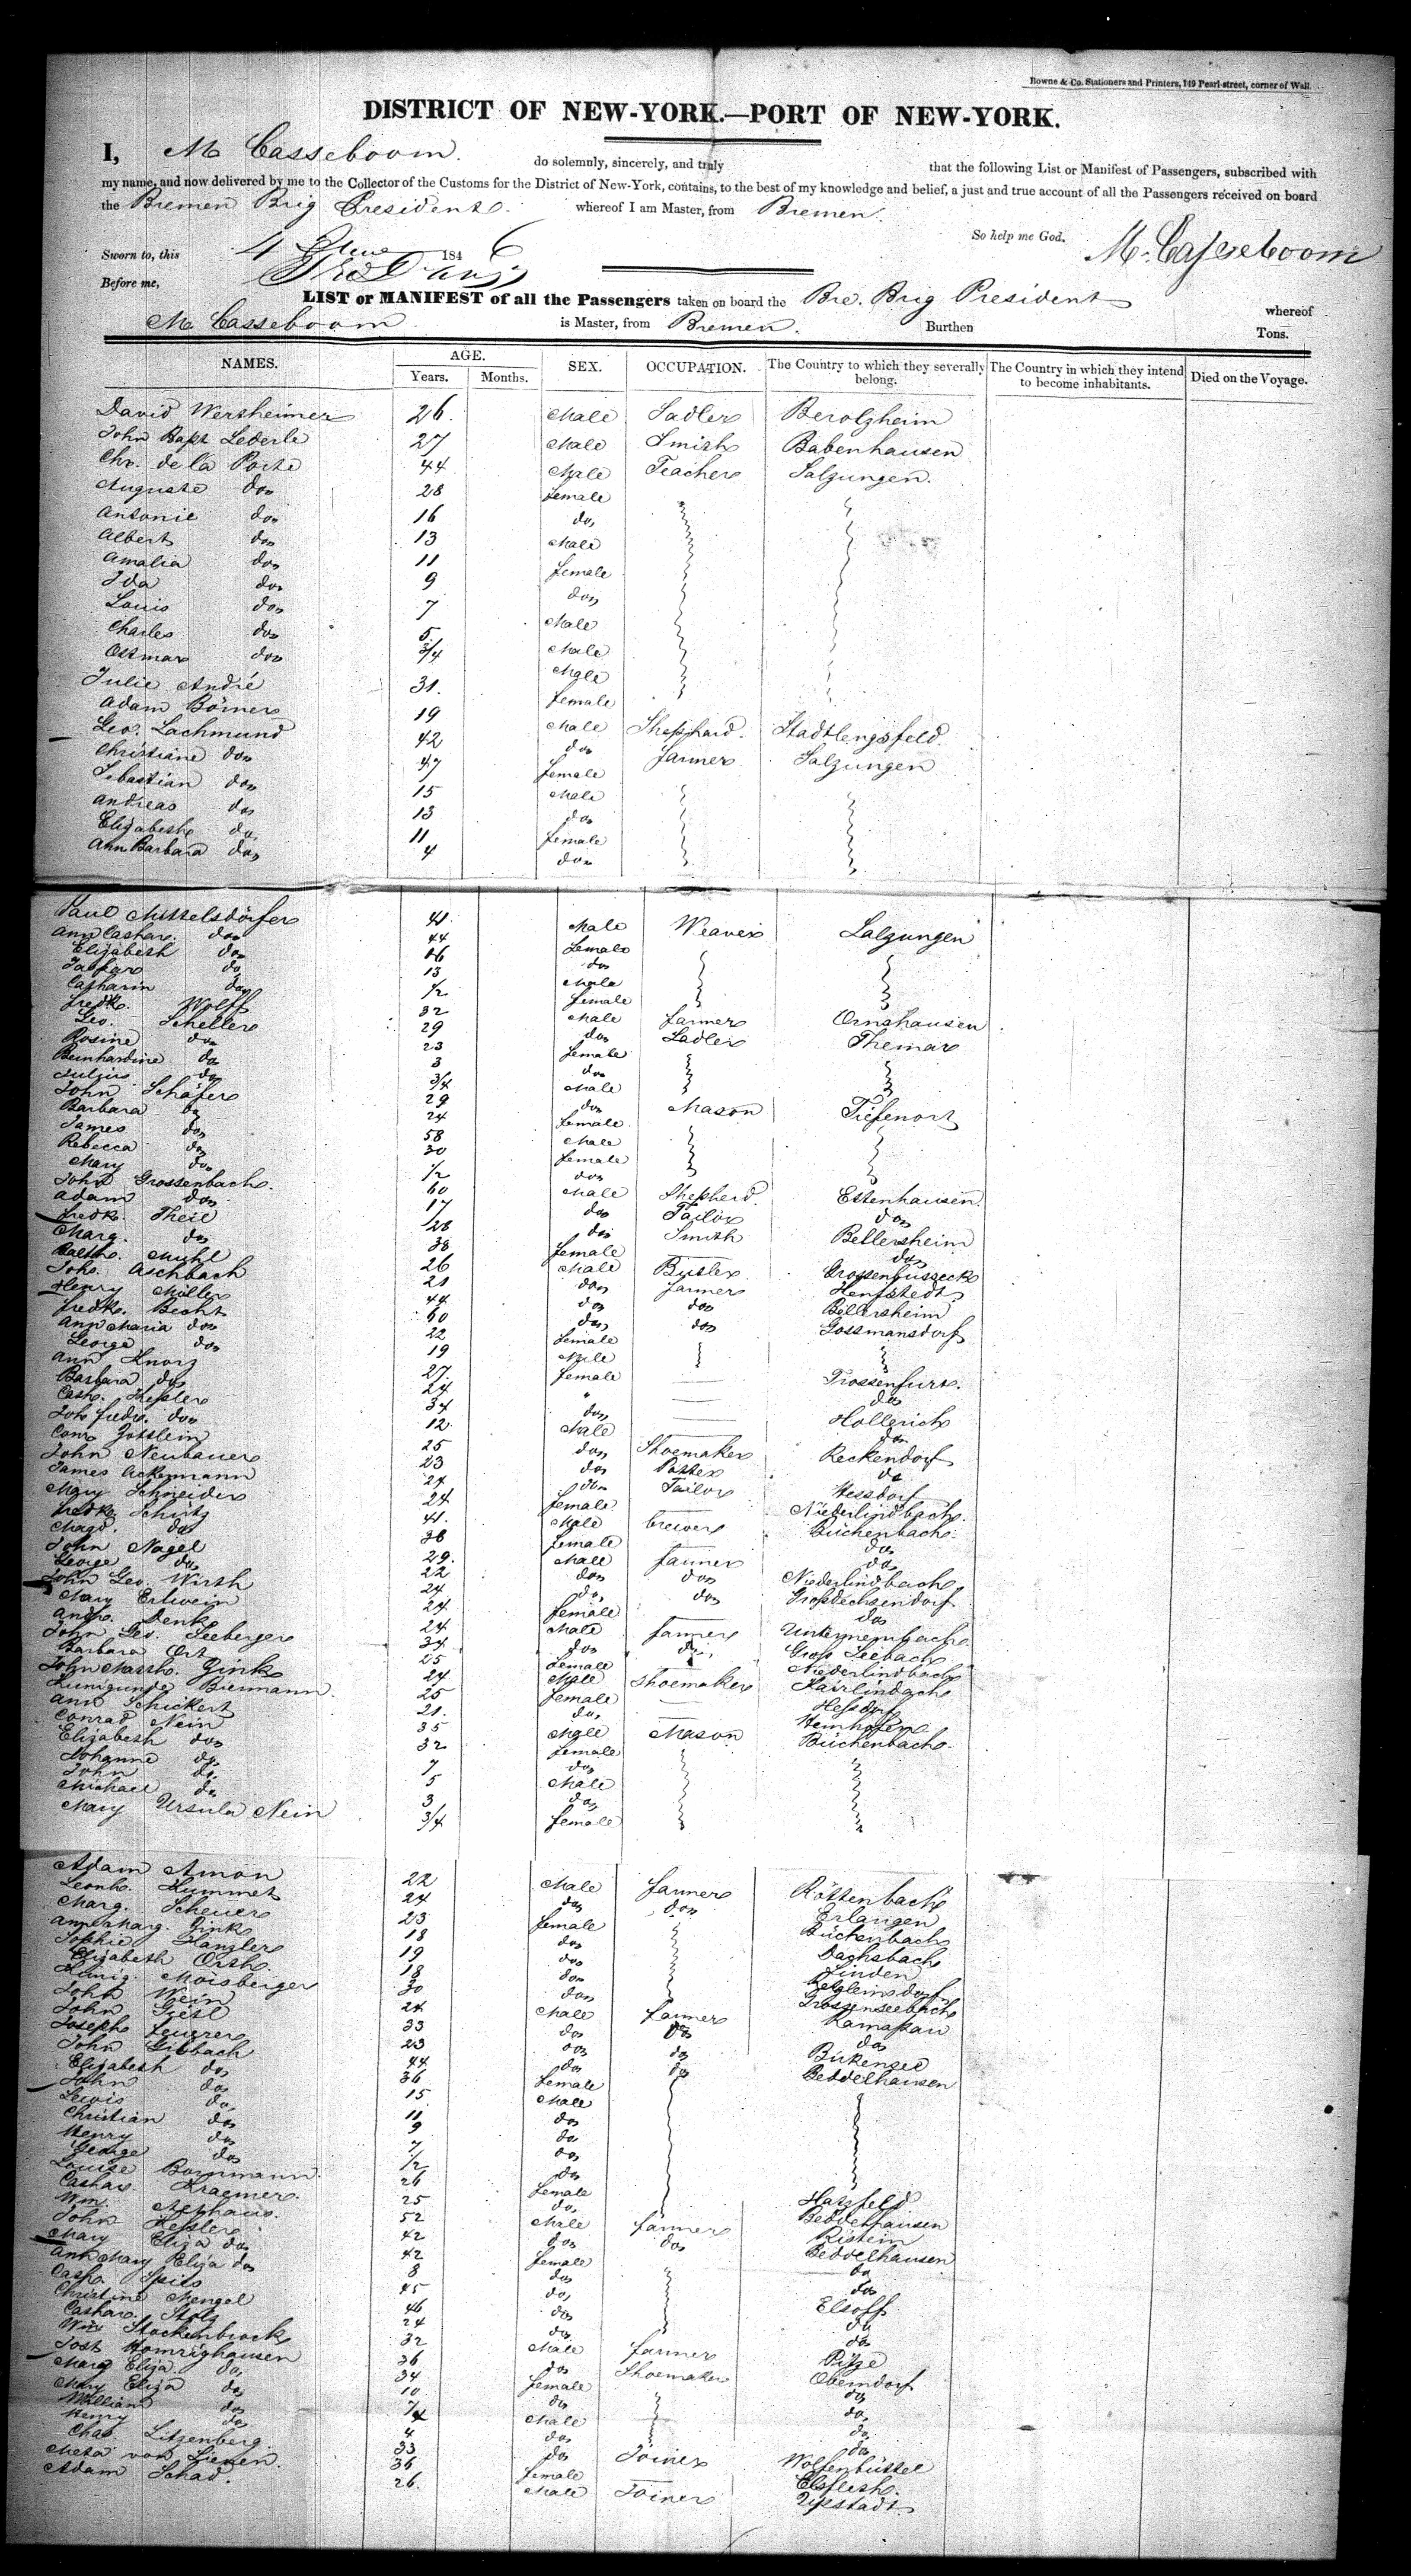 Bowne & Co. Stationers and Printers, 149 Pearl-street, corner of Wall.
DISTRICT OF NEW-YORK.—PORT OF NEW-YORK.
I, M Casseboom. do solemnly, sincerely, and truly that the following List or Manifest of Passengers, subscribed with
my name, and now delivered by me to the Collector of the Customs for the District of New-York, contains, to the best of my knowledge and belief, a just and true account of all the Passengers received on board
the Bremen Brig President. whereof I am Master, from Bremen.
So help me God. M. Casseboom
Sworn to, this 4 June 1846
Before me,
LIST or MANIFEST of all the Passengers taken on board the Bre. Brig President whereof
M Casseboom is Master, from Bremen. Burthen Tons.
NAMES. AGE. Years. Months. SEX. OCCUPATION. The Country to which they severally belong. The Country in which they intend to become inhabitants. Died on the Voyage.
David Wersheimer 26. Male Sadler Berolzheim
John Bapt Lederle 27 Male Smith Babenhausen
Chr. de la Porte 44 Male Teacher Salzungen.
Auguste do 28 female
Antonie do 16 do
Albert do 13 Male
Amalia do 11 female
Ida do 9 do
Louis do 7 Male
Charles do 5 Male
Ottmar do 3/4 Male
Julie André 31. female
Adam Börner 19 Male Shepherd. Stadtlengsfeld.
Geo. Lachmund 42 do farmer Salzungen
Christiane do 47 female
Sebastian do 15 Male
Andreas do 13 do
Elizabeth do 11 female
Ann Barbara do 4 do
Paul Mittelsdörfer 41 Male Weaver Salzungen
Ann Cathar. do 44 female
Elizabeth do 16 do
do 13 Male
Catharin do 1/2 female
Fredk. Wolff 32 Male farmer Ornshausen
Geo. Scheller 29 do Sadler Themar
Rosine do 23 female
Bernhardine do 3 do
Julius do 3/4 Male
John Schäfer 29 do Mason Tiefenort
Barbara do 24 female
James do 58 Male
Rebecca do 30 female
Mary do 1/2 do
John Grossenbach. 60 Male Shepherd Ettenhausen
Adam do 17 do Tailor do
Fredk. Theil 28 do Smith Bellersheim
Marg. do 38 female do
Balth. Muhl 26 Male Butler Grossenbusseck
Joh. Aschbach 21 do farmer Henfstedt
Henry Möller 44 do do Bellersheim
Fredk. Becht 60 do do Gossmansdorf
Ann Maria do 22 female
George do 19 Male
Ann Knorz 27. female Trossenfurt.
Barbara do 24 " do
Cath. Kessler 34 do Hollerich
Joh. fredr. do 12 Male do
Conr Gottlein 25 do Shoemaker Reckendorf
John Neubauer 23 do Potter do
James Ackermann 24 do Tailor Hessdorf
Mary Schneider 24 female Niederlindbach.
Fredk. Schütz 41. Male brewer Büchenbach.
Magd. do 38 female do
John Nagel 29. Male farmer do
George do 22 do do Niederlindbach
John Geo. Wirth 24 do do Grossdechsendorf
Mary Erlwein 24 female do
Andr. Denk 24 Male farmer
John Geo. Seeberger 34 do do Gross Seebach
Barbara Ort 25 female Niederlindbach
John Matth. Zink 24 Male Shoemaker Kairlindach
Kunigunde Biermann. 25 female Hessdorf
Ann Schickert 21. do
Conrad Nein 35 Male Mason Büchenbach.
Elizabeth do 32 female
Johanne do 7 do
John do 5 Male
Michael do 3 do
Mary Ursula Nein 3/4 female
Adam Amon 22 Male farmer Röttenbach
Leonh. Kummet 24 do do Erlangen
Marg. Scheuer 23 female Büchenbach
Ann Marg. Zink 18 do Dachsbach
Sophie Hangler 19 do Linden
Elizabeth Orth. 18 do
Kunig. Moisberger 30 do Grossenseebach
John Wein 24 Male farmer Ramassau
John Giesl 33 do do do
Joseph Leuerer 23 do do Birkensee
John Gilbach 44 do do Beddelhausen
Elizabeth do 36 female
John do 15 Male
Lewis do 11 do
Christian do 9 do
Henry do 7 do
George do 1/2 do
Louise Bornmann. 26 female Hatzfeld
Cathar. Kraemer. 25 do Beddelhausen
Wm. 52 Male farmer Ristein
John Kessler 42 do do Beddelhausen
Mary Eliza do 42 female do
Ann Mary Eliza do 8 do do
Cath. Spies 45 do Elsoff
Christine Mengel 46 do do
Cathar. Stolz 24 do do
Wm Stockenbrock 32 Male farmer
Jost Homrighausen 36 do Shoemaker Oberndorf
Marg Eliza. do 34 female do
Mary Eliza do 10 do do
William do 7 Male do
Henry do 4 do do
Chas. Litzenberg. 33 do Joiner Wolfenbüttel
Meta von Lienen. 36 female Elsfleth.
Adam Schad. 26. Male Joiner